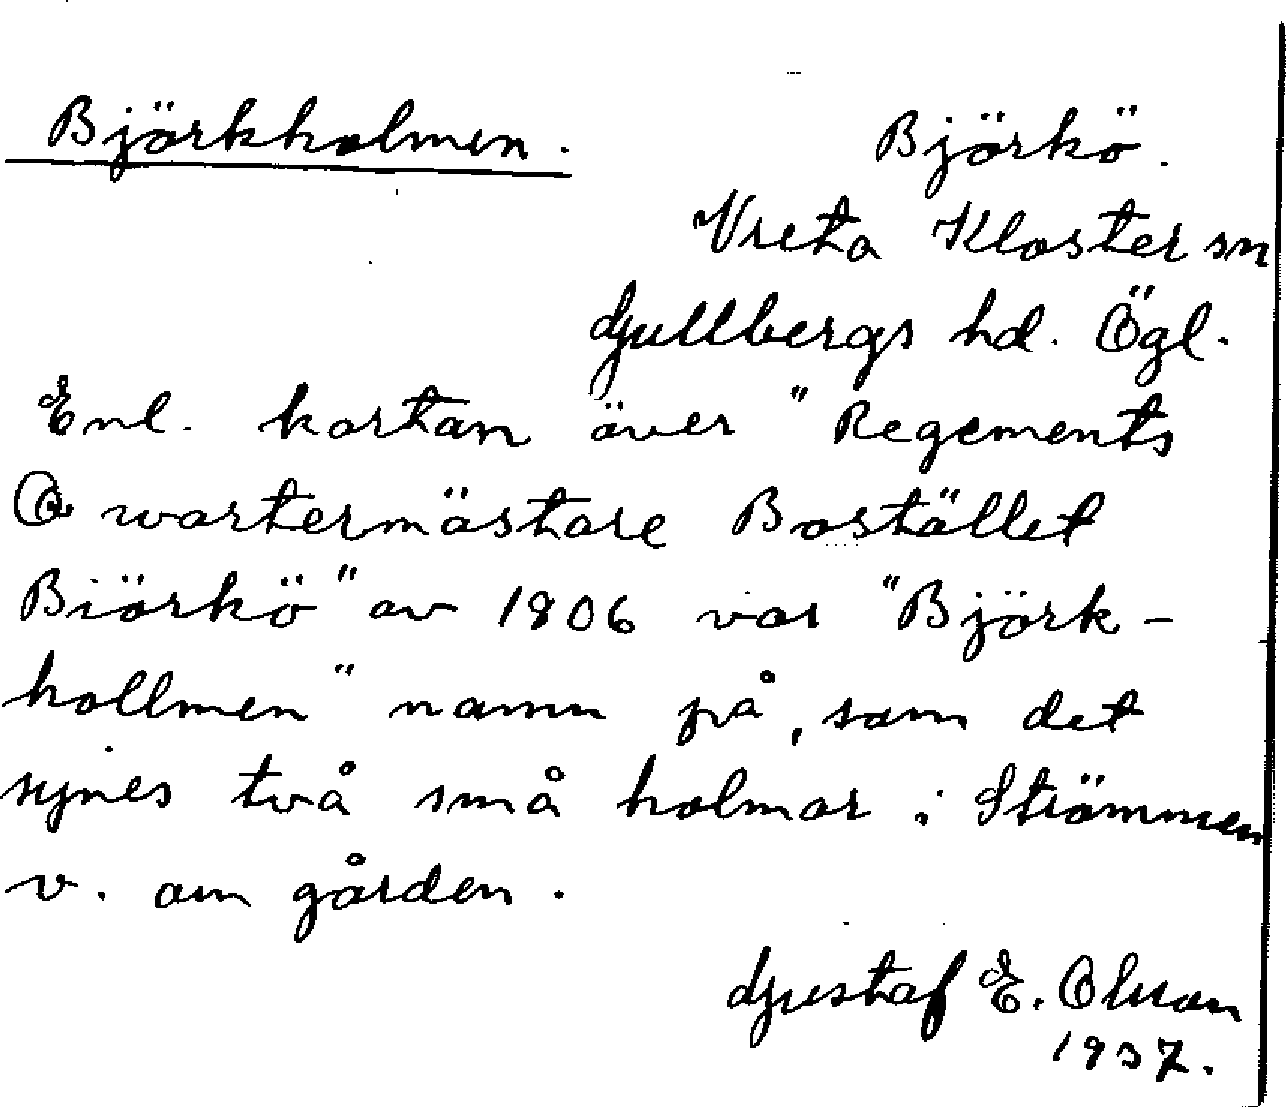 Björkholmen.
Björkö.
Vreta Kloster sn
Gullbergs hd. Ögl.
Enl. kartan över "Regements
Qwartermästare Bostället
Biörkö" av 1806 var "Björk-
hollmen" namn på, som det
synes två små holmar i Strömmen
v. om gården.
Gustaf E. Olsson
1937.